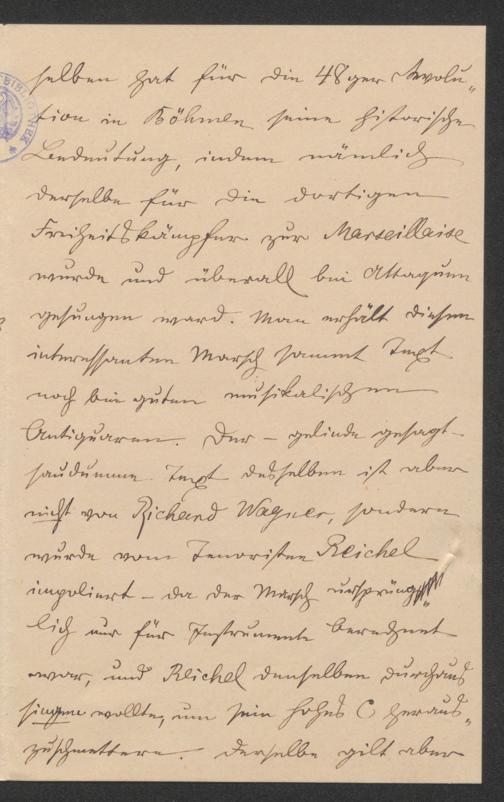 selben hat für die 48ger Revolu-
tion in Böhmen seine historische
Bedeutung, indem nämlich
derselbe für die dortigen
Freiheitskämpfer zur Marseillaise
wurde und überall bei Attaquen
gesungen ward. Man erhält diesen
interessanten Marsch sammt Text
noch bei guten musikalischen
Antiquaren. Der – gelinde gesagt –
saudumme Text desselben ist aber
nicht von Richard Wagner, sondern
wurde vom Tenoristen Reichel
impoliert – da der Marsch ursprüng-
lich nur für Instrumente berechnet
war, und Reichel denselben durchaus
singen wollte, um sein hohes C heraus-
zuschmettern. Derselbe gilt aber
BIBLIOTHEK